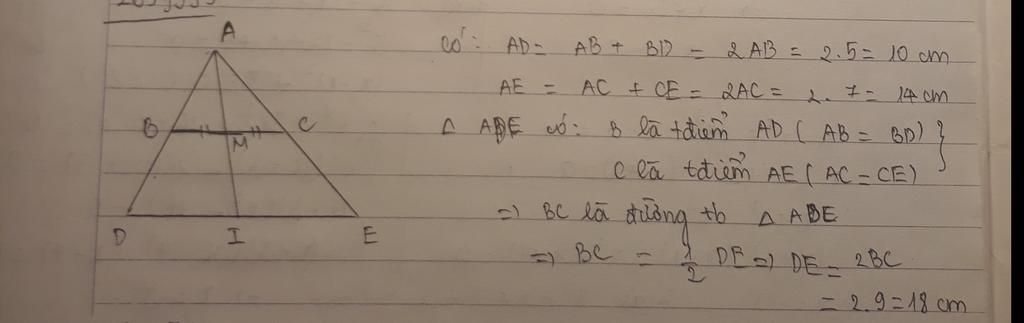 A
B
C
M
D
I
E
có: AD = AB + BD = 2AB = 2.5 = 10 cm
AE = AC + CE = 2AC = 2.7 = 14 cm
Δ ADE có: B là tđiểm AD (AB = BD)
C là tđiểm AE (AC = CE)
=> BC là đường tb Δ ADE
=> BC = 1/2 DE => DE = 2BC
= 2.9 = 18 cm